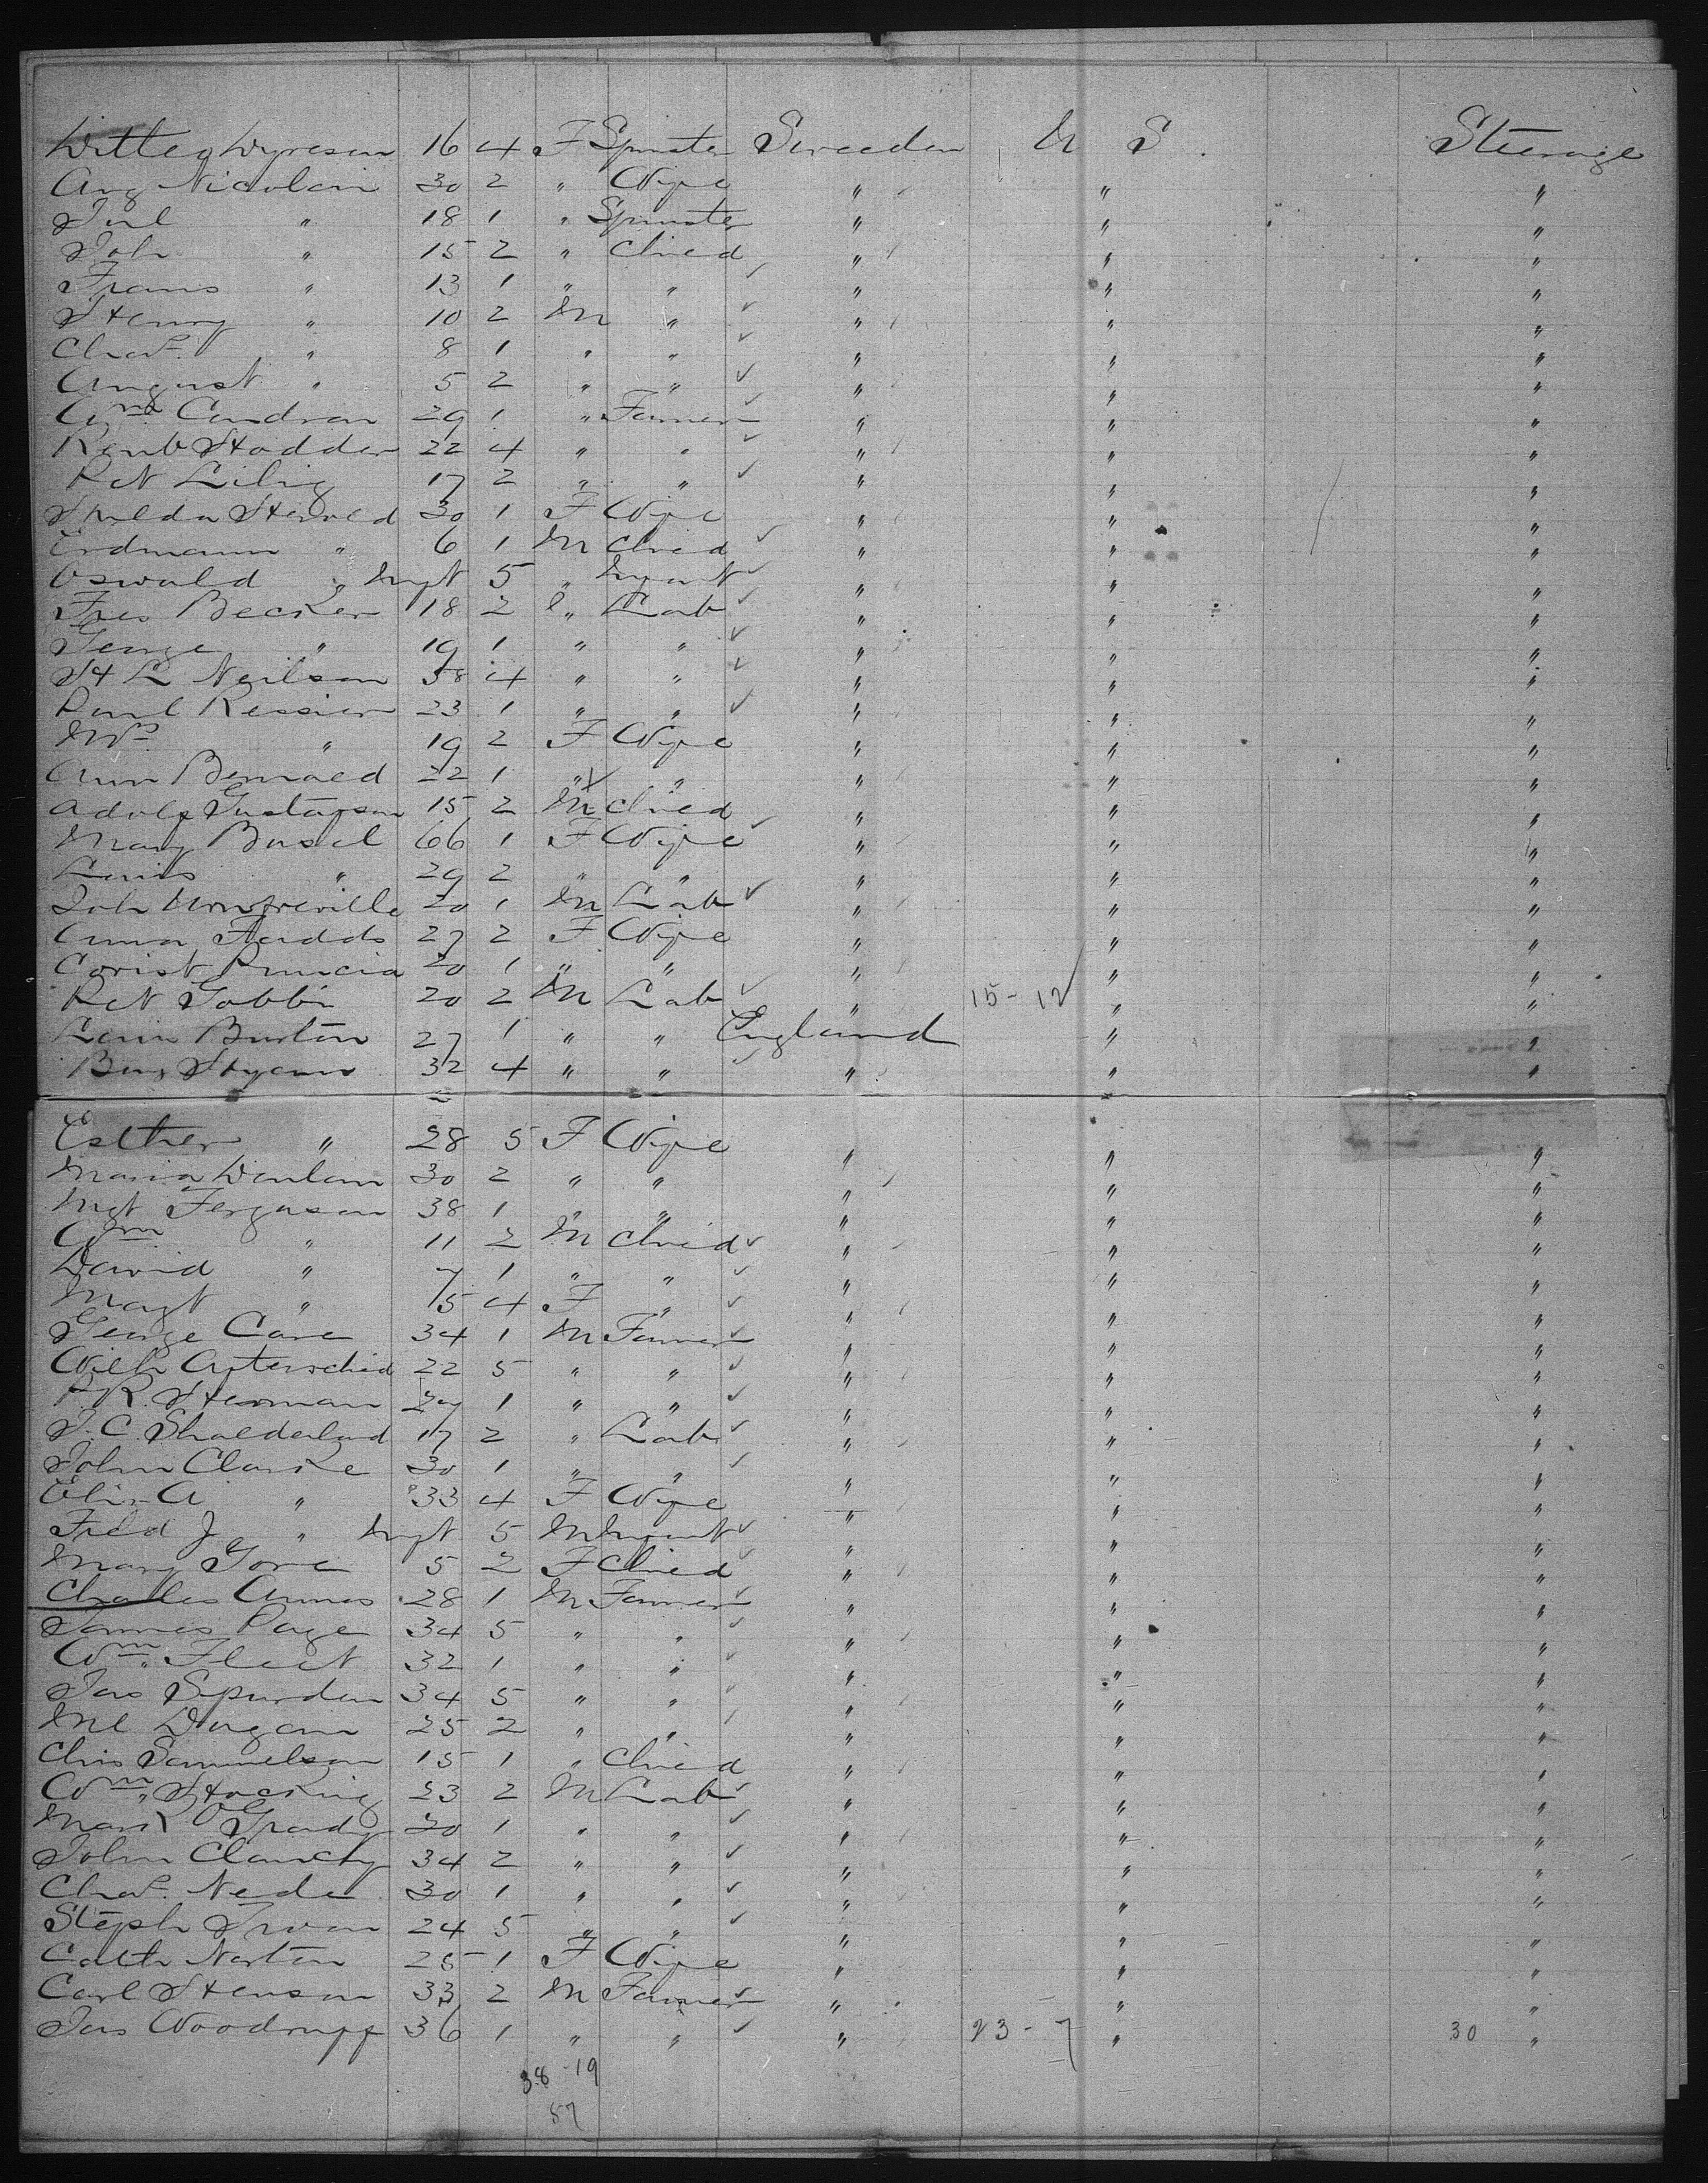 Wittea Wyreson 16 4 F Spinster Sweeden U S Steerage
Aug Nicolai 30 2 " Wife " " "
Jul " 18 1 " Spinster " " "
Joh " 15 2 " Child " " "
Frans " 13 1 " " " " "
Henry " 10 2 M " " " "
Chas " 8 1 " " " " "
August " 5 2 " " " " "
Wm Condron 29 1 " Farmer " " "
Reub Hodder 22 4 " " " " "
Pet Lilig 17 2 " " " " "
Hulda Herold 30 1 F Wife " " "
Erdmann " 6 1 M Child " " "
Oswald " Inft 5 " Infant " " "
Fres Becker 18 2 " Lab " " "
George " 19 1 " " " " "
H L Neilson 38 4 " " " " "
Paul Ressier 23 1 " " " " "
Mrs " 19 2 F Wife " " "
Ann Bernaed 22 1 " " " " "
Adolf Gustafson 15 2 M Child " " "
Mary Busel 66 1 F Wife " " "
Louis " 29 2 " " " " "
Joh Umfreville 20 1 M Lab " " "
Anna Fadds 27 2 F Wife " " "
Corist Pruncia 20 1 " " " " "
Pet Gobbi 20 2 M Lab " 15 - 12 " "
Loui Burton 27 1 " " England " "
Benj Hyam 32 4 " " " " "
Esther " 28 5 F Wife " " "
Maria Donlan 30 2 " " " " "
Mgt Ferguson 38 1 " " " " "
Wm " 11 2 M Child " " "
David " 7 1 " " " " "
Magt " 5 4 F " " " "
George Care 34 1 M Farmer " " "
Wilh Arterschid 22 5 " " " " "
P. R. Herman 27 1 " " " " "
J. C. Shaederland 17 2 " Lab " " "
John Clarke 30 1 " " " " "
Eliz A " 33 4 F Wife " " "
Fred J " Inft 5 M Infant " " "
Mary Gore 5 2 F Child " " "
Charles Annes 28 1 M Farmer " " "
James Page 34 5 " " " " "
Wm Fleet 32 1 " " " " "
Jas Spurden 34 5 " " " " "
Ml Dugan 25 2 " " " " "
Chris Samuelson 15 1 " Child " " "
Wm Hocking 23 2 M Lab " " "
Mark O'Grady 20 1 " " " " "
John Clanchy 34 2 " " " " "
Chas. Neder 30 1 " " " " "
Steph Irvon 24 5 " " " " "
Cath Norton 25 1 F Wife " " "
Carl Henson 33 2 M Farmer " " "
Jas Woodruff 36 1 " " " 23 - 7 " 30 "
38 - 19
57